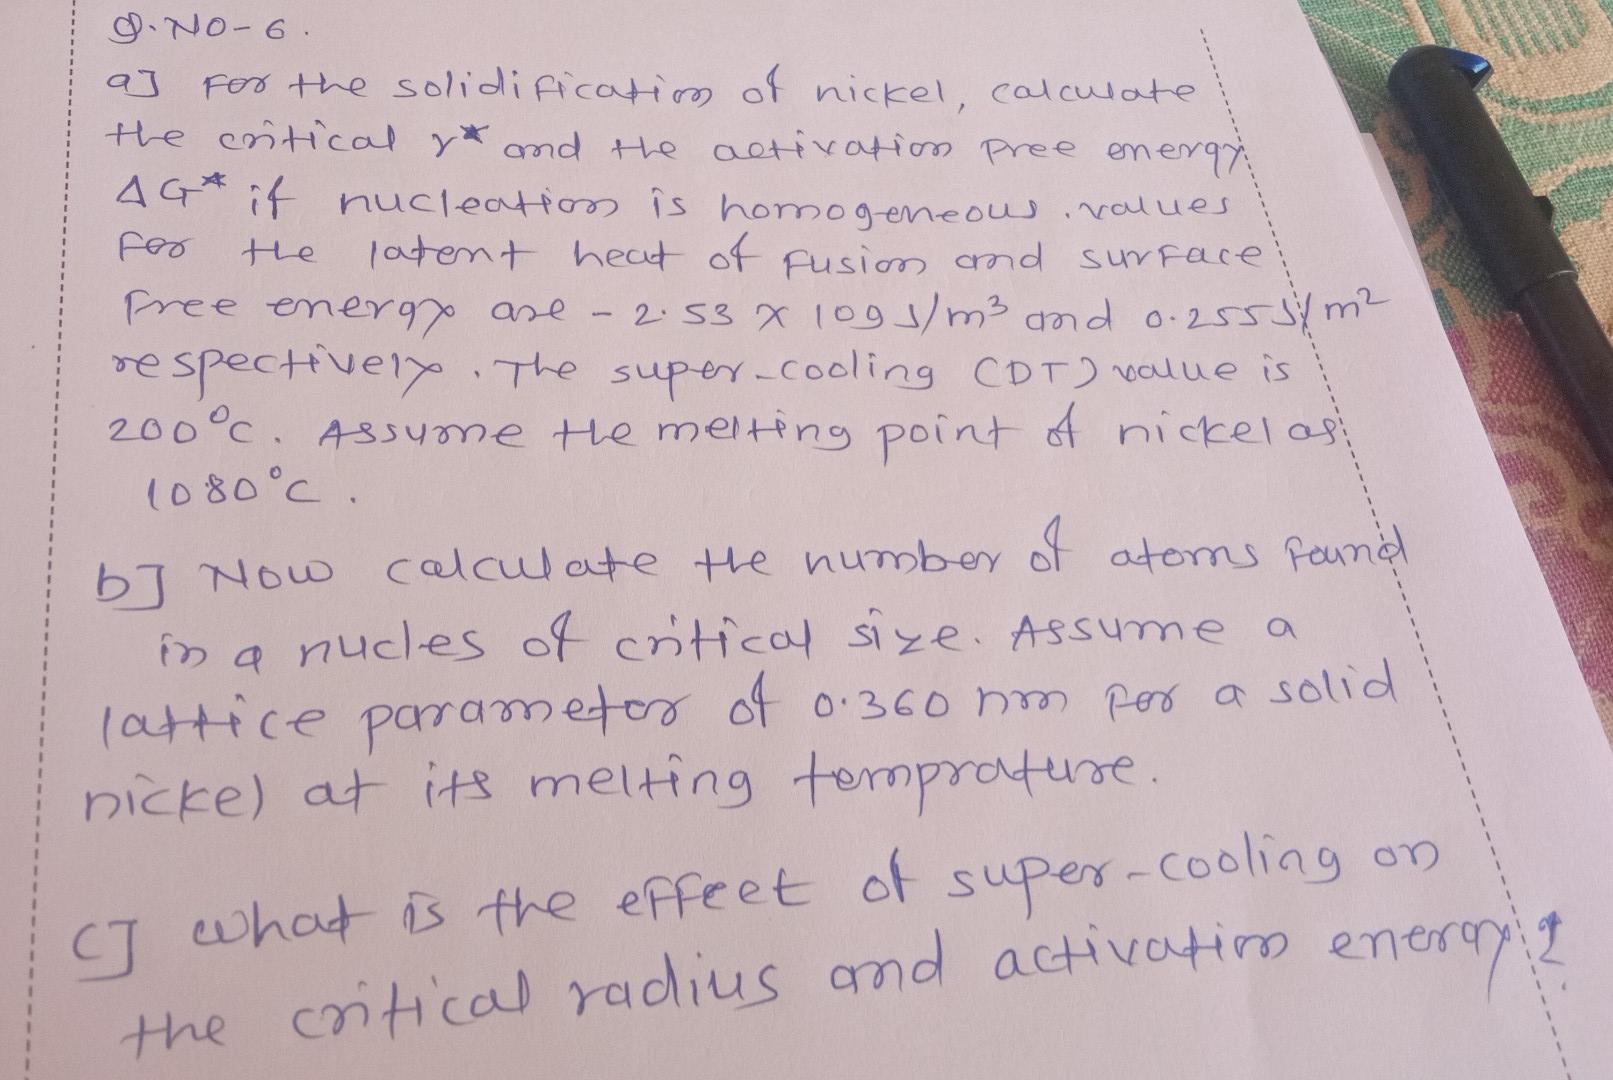 Q.NO-6.
a] For the solidification of nickel, calculate
the critical r* and the activation free energy
ΔG* if nucleation is homogeneous. values
for the latent heat of fusion and surface
free energy are - 2.53 x 109 J/m³ and 0.255 J/m²
respectively. The super-cooling (DT) value is
200°c. Assume the melting point of nickel as
1080°c.
b] Now calculate the number of atoms found
in a nucles of critical size. Assume a
lattice parameter of 0.360 nm for a solid
nickel at its melting temprature.
c] what is the effect of super-cooling on
the critical radius and activation energy?